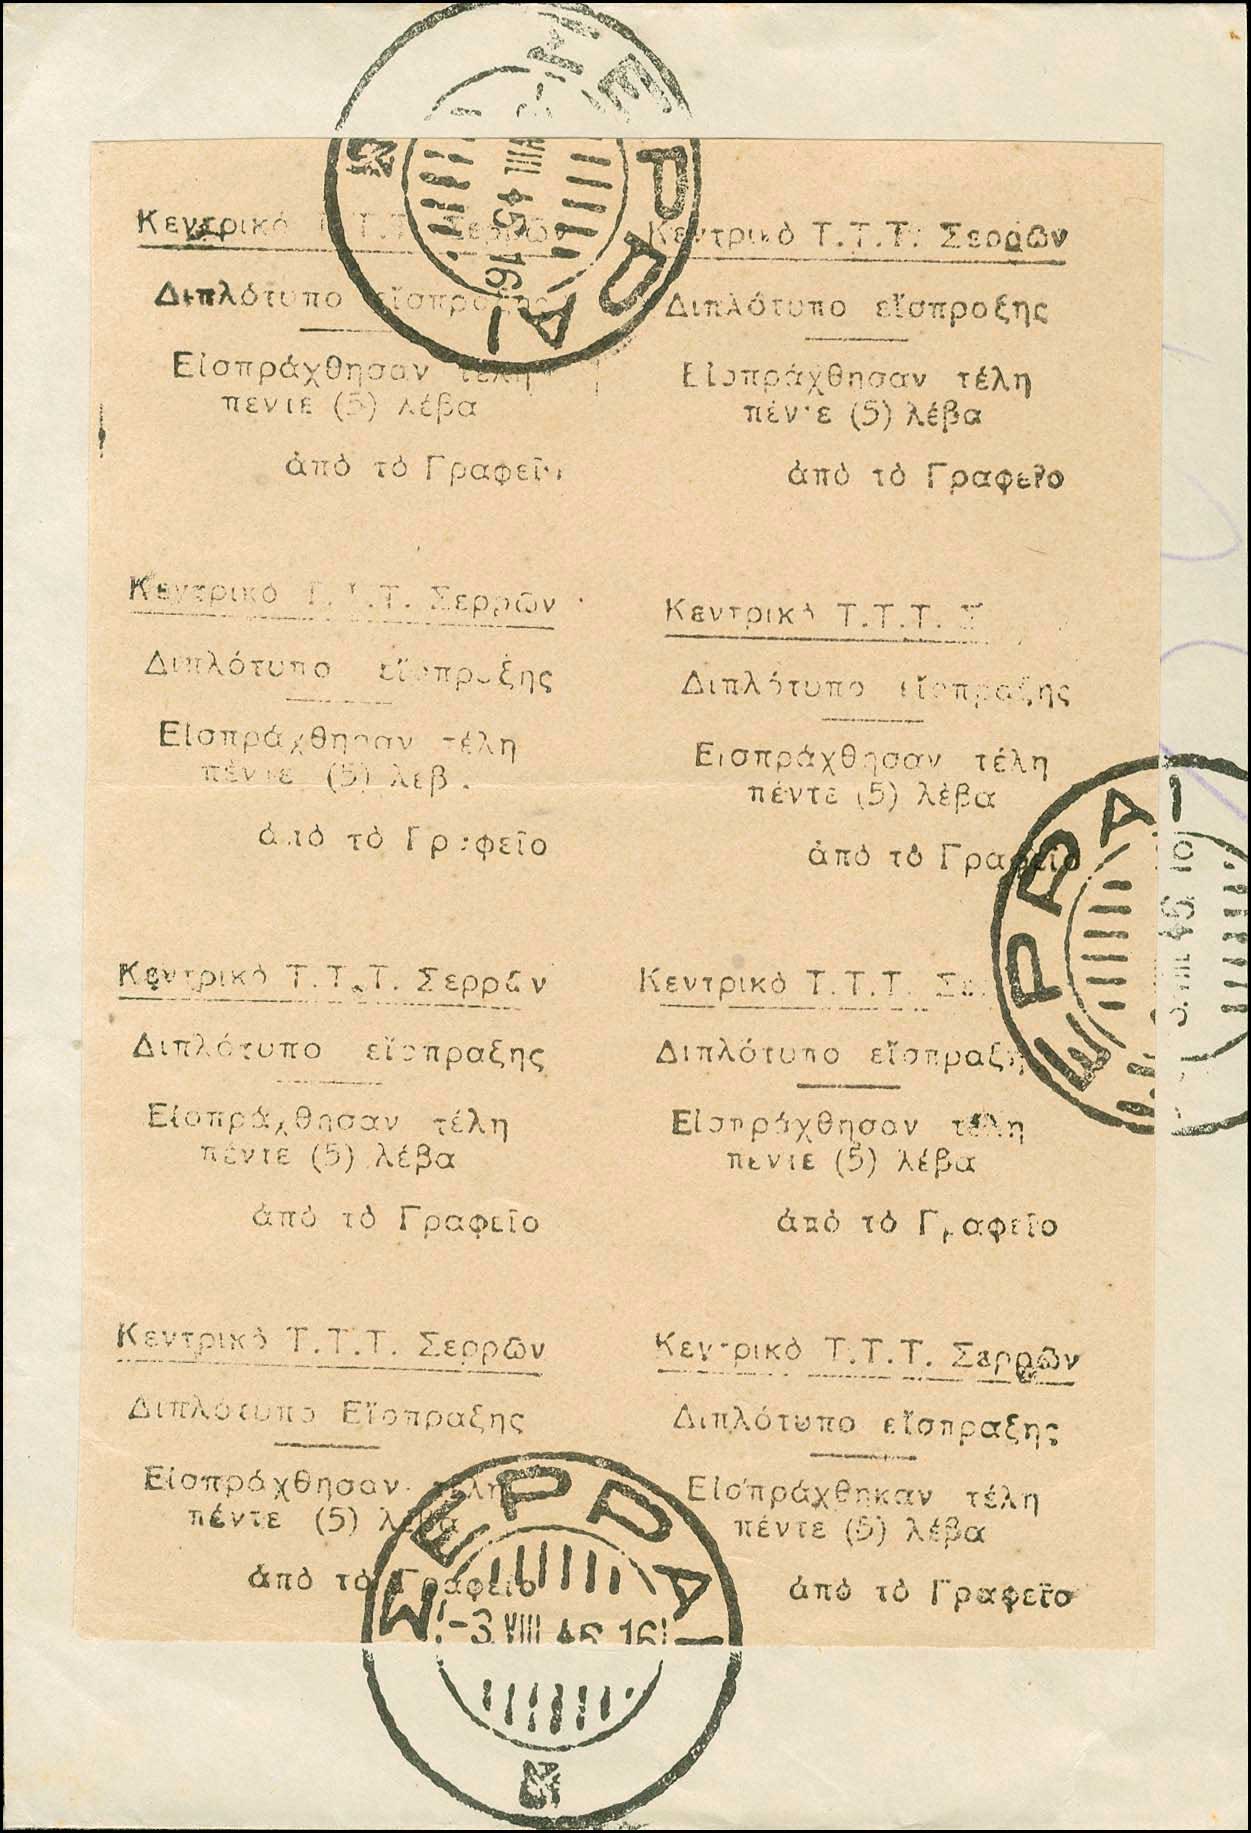 Κεντρικό Τ.Τ. Σερρῶν
Διπλότυπο εἴσπραξης
Εἰσπράχθησαν τέλη
πεντε (5) λέβα
ἀπό τό Γραφεῖ
Κεντρικό Τ.Τ.Τ. Σερρῶν
Διπλότυπο εἴσπροξης
Εἰσπράχθησαν τέλη
πέντε (5) λέβα
ἀπό τό Γραφεῖο
Κεντρικό Τ.Τ.Τ. Σερρῶν
Διπλότυπο εἴσπραξης
Εἰσπράχθησαν τέλη
πέντε (5) λεβ
ἀπό τό Γραφεῖο
Κεντρικό Τ.Τ.Τ. Σ
Διπλότυπο εἴσπραξης
Εισπράχθησαν τέλη
πέντε (5) λέβα
ἀπό τό Γραφεῖο
Κεντρικό Τ.Τ.Τ. Σερρῶν
Διπλότυπο εἴσπραξης
Εἰσπράχθησαν τέλη
πέντε (5) λέβα
ἀπό τό Γραφεῖο
Κεντρικό Τ.Τ.Τ. Σε
Διπλότυπο εἴσπραξη
Εἰσπράχθησαν τέλη
πεντε (5) λέβα
ἀπό τό Γραφεῖο
Κεντρικό Τ.Τ.Τ. Σερρῶν
Διπλότυπο Εἴσπραξης
Εἰσπράχθησαν τέλη
πέντε (5) λέβα
ἀπό τό Γραφεῖο
Κεντρικό Τ.Τ.Τ. Σερρῶν
Διπλότυπο εἴσπραξης
Εἰσπράχθηκαν τέλη
πέντε (5) λέβα
ἀπό τό Γραφεῖο
ΣΕΡΡΑΙ
ΕΡΡΑΙ
ΣΕΡΡΑΙ
-3 VIII 45 16